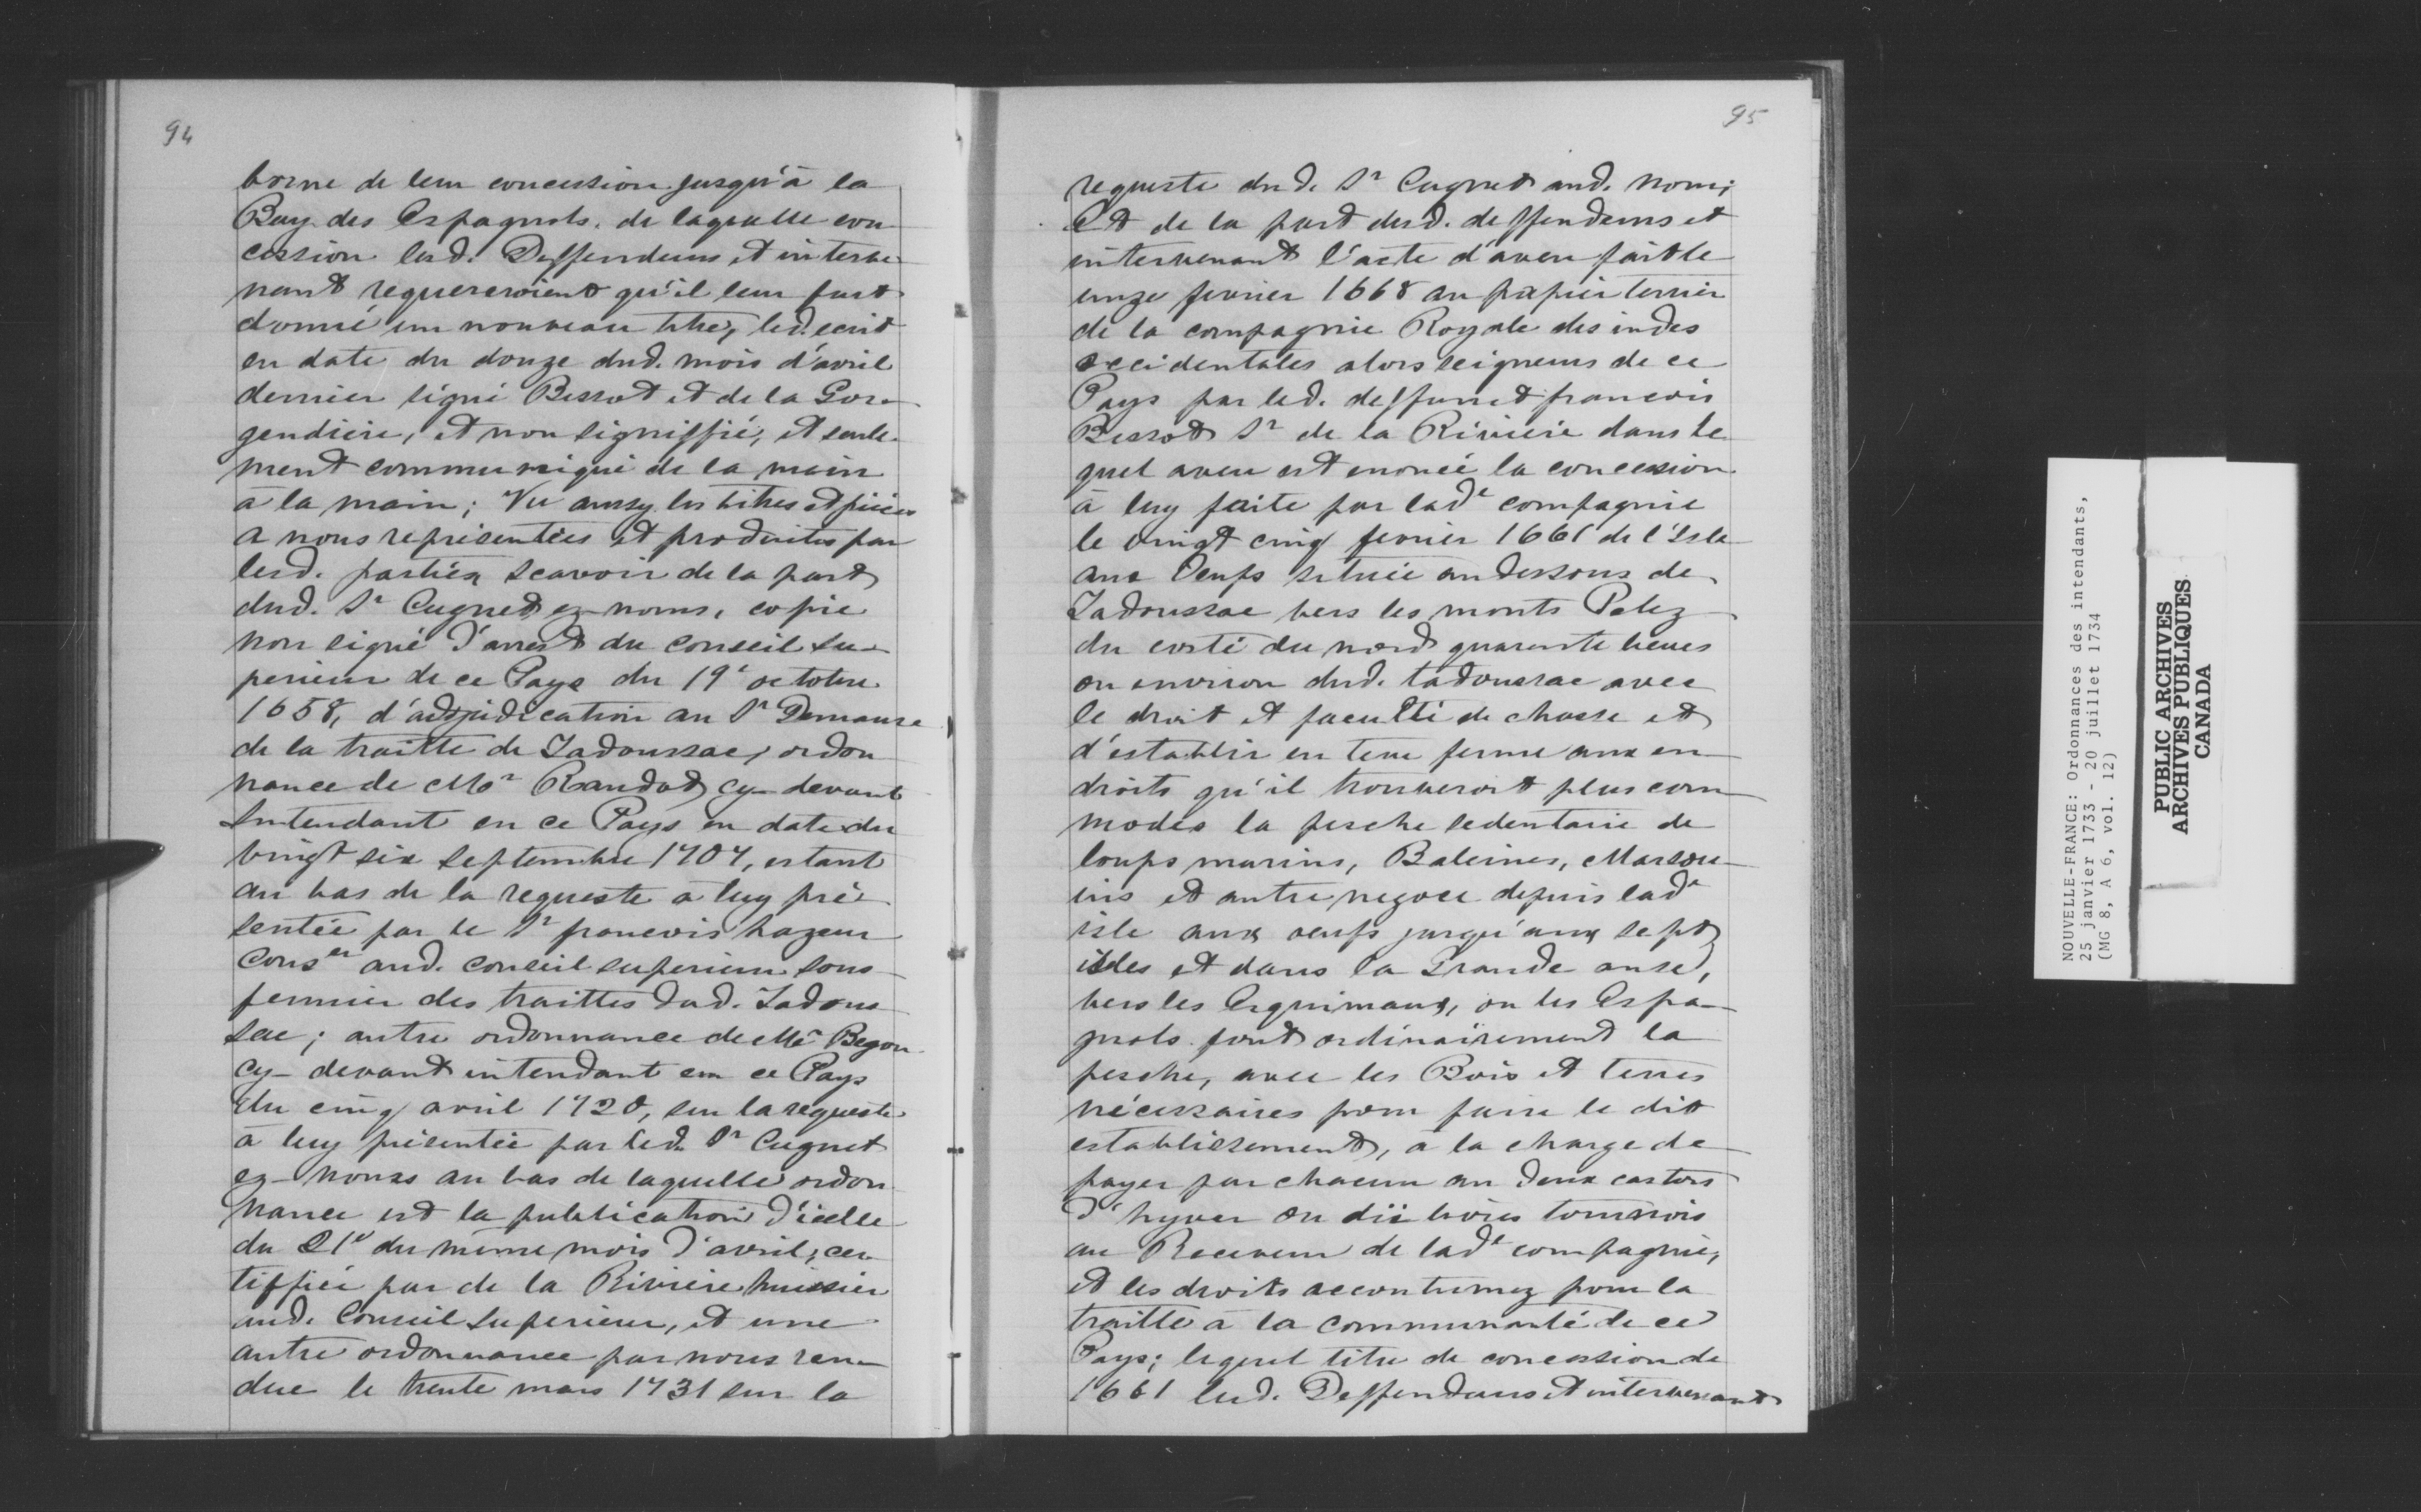 94
borne de leur concession jusqu'à la
Bay des Espagnols, de laquelle con
cession lesd. Deffendeurs et interve
nant requereroient qu'il leur fust
donné un nouveau titre, led. ecrit
en date du douze dud. mois d'avril
dernier signé Bissot et de la Gor-
gendiere, et non signiffié, et seule-
ment communiqué de la main
à la main; Vu aussy les titres et pièces
a nous representées et produites par
lesd. parties scavoir de la part
dud. Sr Cugnet ez-noms, copie
non signé d'arrest du conseil su-
perieur de ce Pays du 19e octobre
1658, d'adjudication au Sr Demaure
de la traitte de Tadoussac, ordon
nance de Mr Raudot cy-devant
Intendant en ce Pays en date du
vingt six septembre 1707, estant
au bas de la requeste a luy pré-
sentée par le Sr francois hazeur
Conser aud. conseil superieur sous
fermier des traittes dud. Tadous
sac; autre ordonnance de Mr Begon
cy-devant intendant en ce Pays
du cinq avril 1720, sur la requeste
à luy présentée par led. Sr Cugnet
ez-noms au bas de laquelle ordon
nance est la publication d'icelle
du 21e du même mois d'avril, cer
tiffiée par de la Riviere huissier
aud. Conseil Superieur, et une
autre ordonnance par nous ren-
due le trente mars 1731 sur la
95
requeste dud. Sr Cugnet aud. nom;
Et de la part desd. deffendeurs et
intervenant l'acte d'aveu fait le
unze fevrier 1668 au papier terrier
de la compagnie Royale des indes
occidentales alors seigneurs de ce
Pays par led. deffunct francois
Bissot Sr de la Riviere dans le
quel aveu est enoncé la concession
à luy faite par lade compagnie
le vingt cinq fevrier 1661 de l'Isle
aux Oeufs située au dessous de
Tadoussac vers les monts Pelez
du costé du nord quarante lieues
ou environ dud. tadoussac avec
le droit et faculté de chasse et
d'establir en terre ferme aux en-
droits qu'il trouveroit plus com-
modes la pesche sedentaire de
loups marins, Baleines, Marsou-
ins et autre negoce depuis lade
isle aux oeufs jusqu'aux sept
isles et dans la Grande anse,
vers les Esquimaux, ou les Espa-
gnols font ordinairement la
pesche, avec les Bois et terres
nécessaires pour faire le dit
establissement, à la charge de
payer par chacun an deux castors
d'hyver ou dix livres tournois
au Receveur de lade compagnie,
et les droits accoutumez pour la
traitte à la communauté de ce
Pays; lequel titre de concession de
1661 lesd. Deffendeurs et intervenant
NOUVELLE-FRANCE: Ordonnances des intendants,
25 janvier 1733 - 20 juillet 1734
(MG 8, A 6, vol. 12)
PUBLIC ARCHIVES
ARCHIVES PUBLIQUES
CANADA